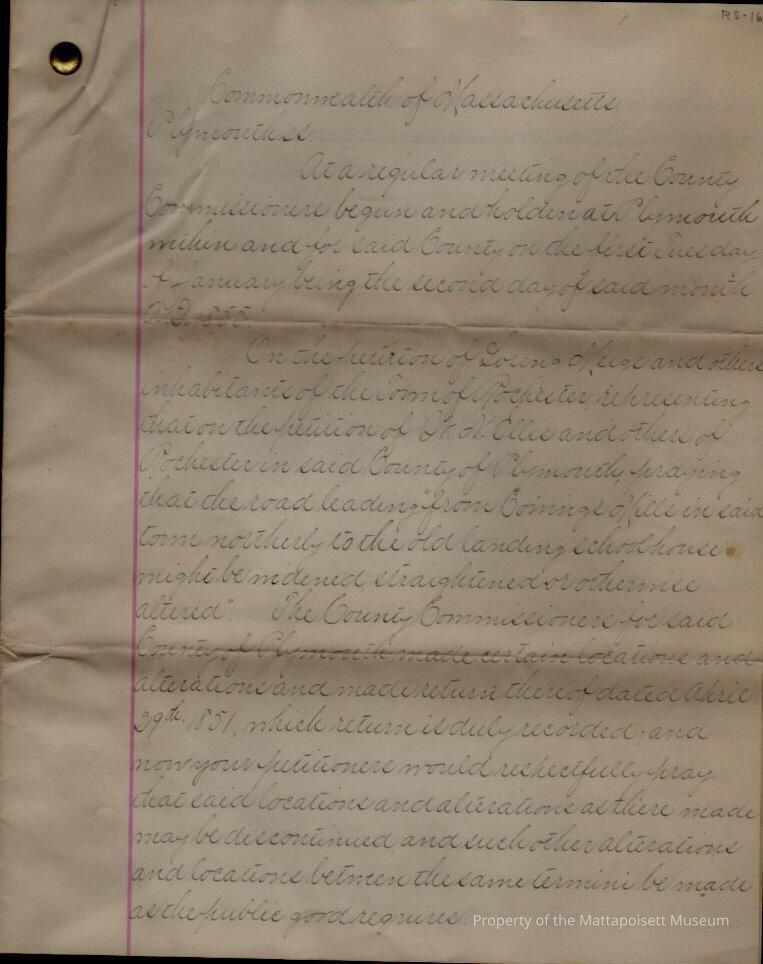 RS-16
Commonwealth of Massachusetts.
Plymouth ss.
At a regular meeting of the County
Commissioners begun and holden at Plymouth
within and for said County on the first Tuesday
of January being the second day of said month
A.D. 1855.
On the petition of Loring Meigs and others
inhabitants of the Town of Rochester, representing
that on the petition of W. N. Ellis and others of
Rochester in said County of Plymouth, praying
that the road leading "from Mills in said
town northerly to the old landing schoolhouse
might be widened, straightened or otherwise
altered" The County Commissioners for said
County of Plymouth made certain locations and
alterations and made return thereof dated April
29th 1851, which return is duly recorded, and
now your petitioners would respectfully pray
that said locations and alterations as there made
may be discontinued and such other alterations
and locations between the same termini be made
as the public good requires.
Property of the Mattapoisett Museum